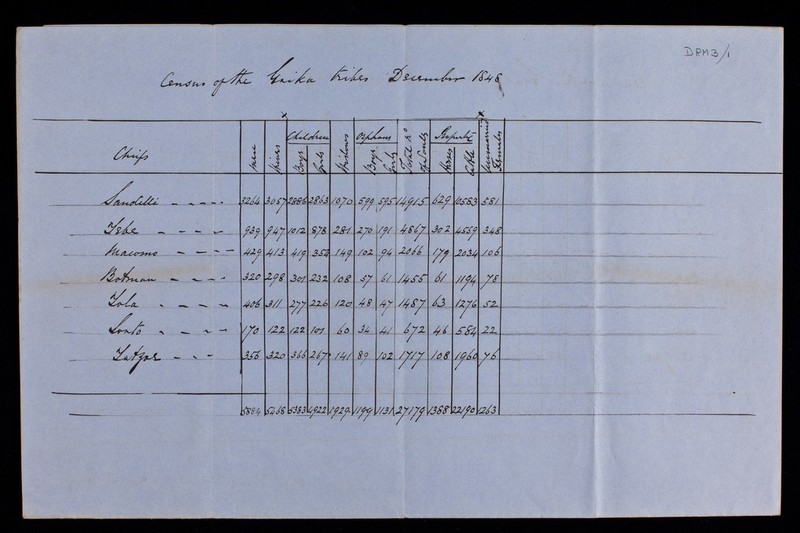 DRM3/1
Census of the Gaika tribes December 1848
Chiefs men wives Children Boys Girls Widows Orphans Boys Girls Total No of Souls Property Horses Cattle unmarried Females
Sandilli - - - - - 3264 3057 2886 2863 1070 599 595 14915 629 10583 581
- - - - 939 947 1012 878 281 270 191 4867 302 4559 348
Macomo - - - - 429 413 419 354 149 102 94 2066 179 2034 106
Botman - - - - 320 298 301 232 108 57 61 1455 61 1194 78
- - - - 406 311 277 226 120 48 47 1487 63 1276 52
- - - - 170 122 122 101 60 34 41 672 46 584 22
- - - 356 320 366 267 141 89 102 1717 108 1960 76
5884 5468 5383 4922 1929 1199 1131 27179 1388 22190 1263